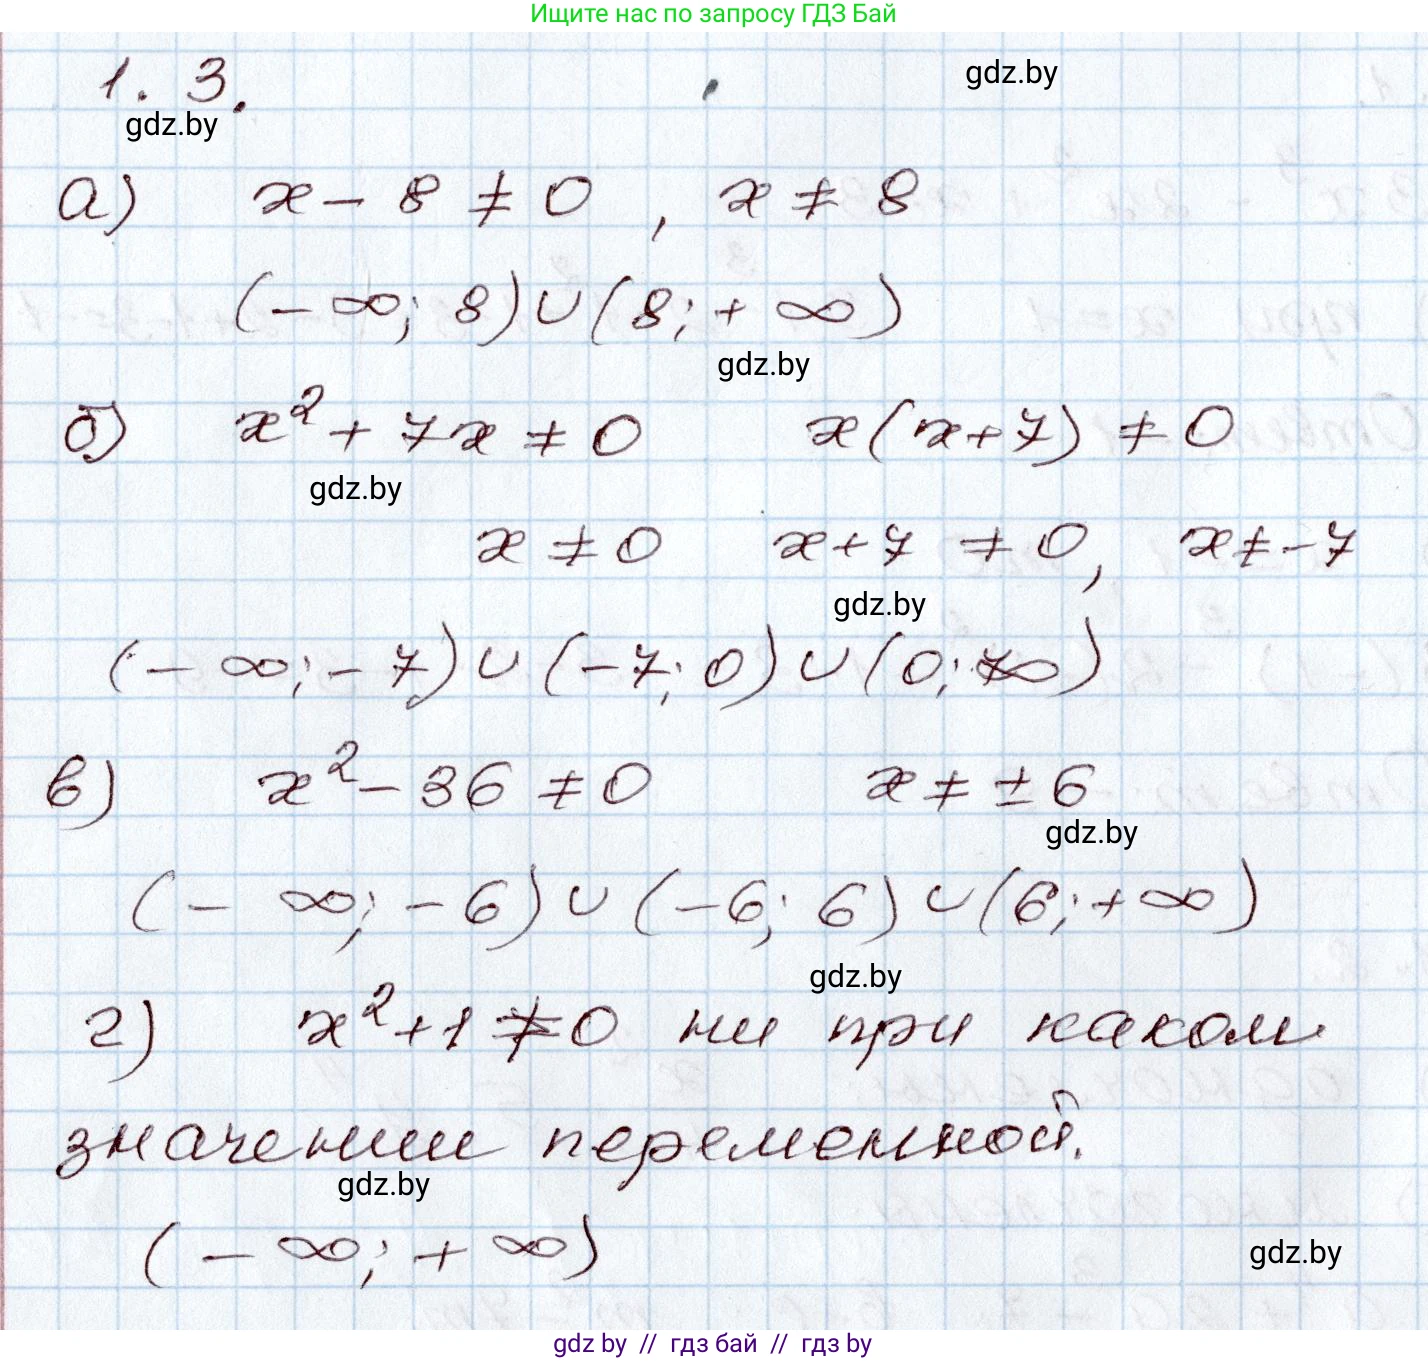 Ищите нас по запросу ГДЗ Бай
1. 3.
gdz.by
gdz.by
а) x - 8 ≠ 0, x ≠ 8
(-∞; 8) ∪ (8; +∞)
gdz.by
б) x² + 7x ≠ 0 x(x+7) ≠ 0
gdz.by
x ≠ 0 x+7 ≠ 0, x ≠ -7
gdz.by
(-∞; -7) ∪ (-7; 0) ∪ (0; ∞)
в) x² - 36 ≠ 0 x ≠ ±6
gdz.by
(-∞; -6) ∪ (-6; 6) ∪ (6; +∞)
gdz.by
г) x² + 1 ≠ 0 ни при каком
значении переменной.
gdz.by
(-∞; +∞)
gdz.by
gdz by // гдз бай // гдз by